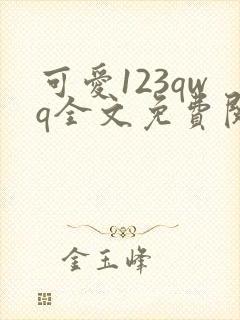 可愛123qw
q全文免費
金玉峰